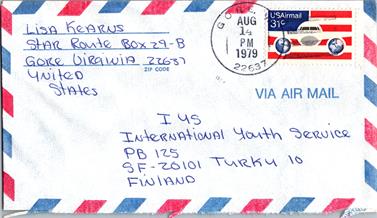 Lisa Kearns
Star Route Box 29-B
Gore Virginia 22637
ZIP CODE
United
States
GORE
AUG
14
PM
1979
22637
USAirmail
31c
VIA AIR MAIL
IYS
International Youth Service
PB 125
SF-20101 TURKU 10
FINLAND